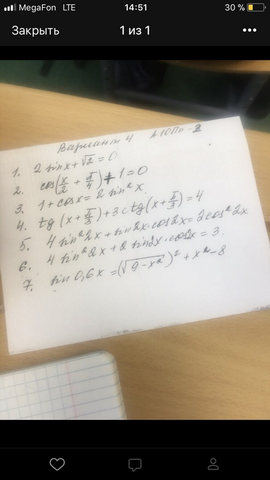 MegaFon LTE 14:51 30 %
Закрыть 1 из 1
Вариант 4
1. 2 sin x + √2 = 0
2. cos(x/2 + π/4) + 1 = 0
3. 1 + cos x = 2 sin² x
4. tg(x + π/3) + 3 ctg(x + π/3) = 4
5. 4 sin² 2x + sin 2x · cos 2x = 3 cos² 2x
6. 4 sin² 2x + 2 sin 2x · cos 2x = 3.
7. sin 0,6x = (√9 - x²)² + x² - 8